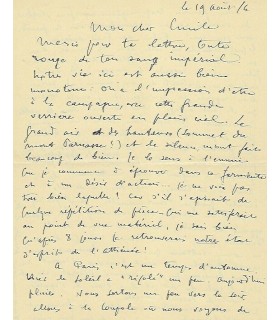 le 19 août /6
Mon cher Émile
Merci pour ta lettre, toute
rouge de ton sang impérial
Notre vie ici est aussi bien
monotone: on a l'impression d'être
à la campagne, avec cette grande
verrière ouverte en plein ciel. Le
grand air et des hauteurs (sommet du
mont Parnasse!) et le silence m'ont fait
beaucoup de bien. Je le sens à l'ennui
que je commence à éprouver dans ce
et à un désir d'action. Je ne vois pas
très bien laquelle! car s'il s'agissait de
quelque répétition de pièce qui me satisferait
au point de vue matériel, je sais bien
qu'après 8 jours je retrouverais notre état
d'esprit de l'Athénée!
A Paris, c'est un temps d'automne
le soleil a "rigolé" un peu. Aujourd'hui
pluie. Nous sortons un peu vers le soir
allons à la Coupole où nous voyons de